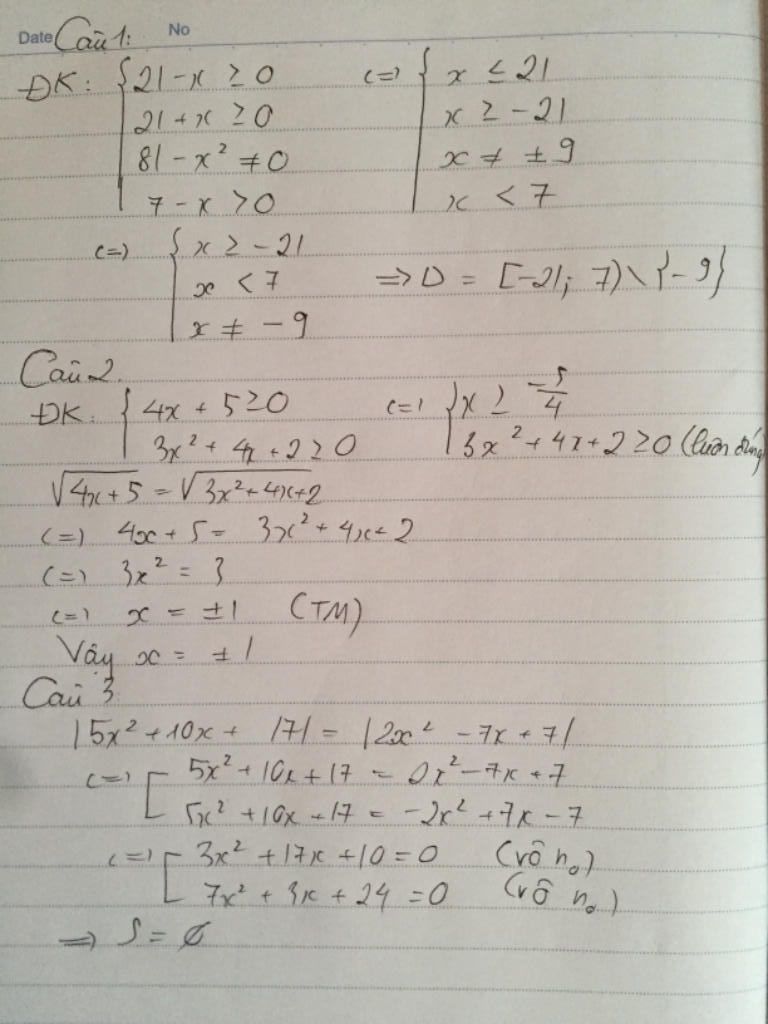 Date Câu 1: No
ĐK: { 21 - x ≥ 0 <=> { x ≤ 21
21 + x ≥ 0 x ≥ -21
81 - x² ≠ 0 x ≠ ±9
7 - x > 0 x < 7
<=> { x ≥ -21
x < 7 => D = [-21; 7) \ {-9}
x ≠ -9
Câu 2.
ĐK: { 4x + 5 ≥ 0 <=> { x ≥ -5/4
3x² + 4x + 2 ≥ 0 3x² + 4x + 2 ≥ 0 (luôn đúng)
√(4x + 5) = √(3x² + 4x + 2)
<=> 4x + 5 = 3x² + 4x + 2
<=> 3x² = 3
<=> x = ±1 (TM)
Vậy x = ±1
Câu 3
|5x² + 10x + 17| = |2x² - 7x + 7|
<=> [ 5x² + 10x + 17 = 2x² - 7x + 7
5x² + 10x + 17 = -2x² + 7x - 7
<=> [ 3x² + 17x + 10 = 0 (vô no)
7x² + 3x + 24 = 0 (vô no)
=> S = ∅